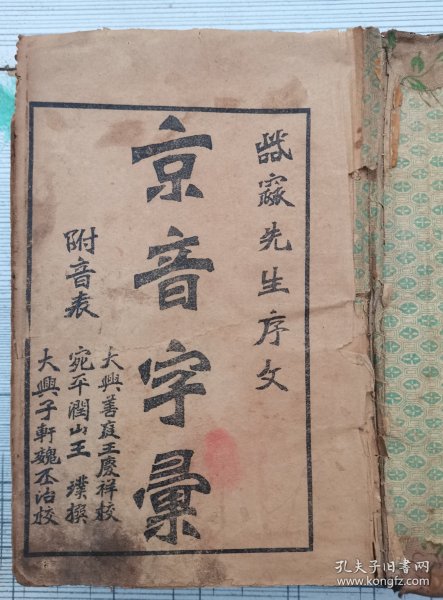 先生序文
京音字彙
附音表
大興善庭王慶祥校
宛平潤山王 璞撰
大興子軒魏丕治校
孔夫子旧书网
www.kongfz.com